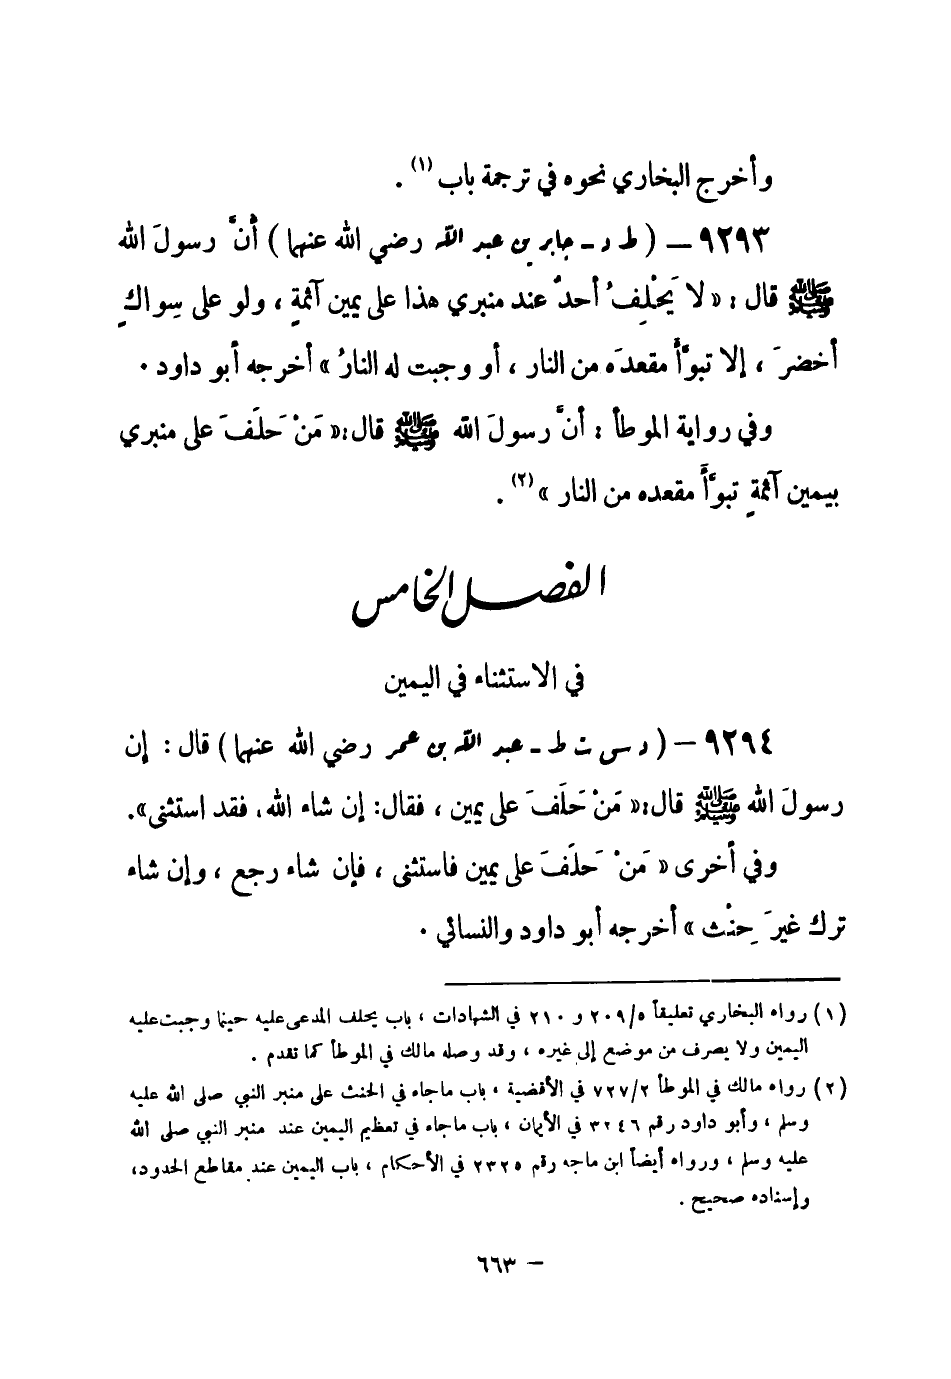 وأخرج البخاري نحوه في ترجمة باب (١) .
٩٢٩٣ – ( ط د - جابر بن عبد الله رضي الله عنهما ) أنَّ رسولَ الله
ﷺ قال : « لا يَحْلِفُ أحدٌ عند منبري هذا على يمين آثمةٍ ، ولو على سِواكٍ
أخضرَ ، إلا تبوَّأَ مقعدَه من النار ، أو وجبت له النارُ » أخرجه أبو داود .
وفي رواية الموطأ : أنَّ رسولَ الله ﷺ قال: « مَنْ حَلَفَ على منبري
بيمين آثمةٍ تبوَّأَ مقعده من النار » (٢) .
الفصل الخامس
في الاستثناء في اليمين
٩٢٩٤ – ( د س ت ط - عبد الله بن عمر رضي الله عنهما ) قال : إن
رسولَ الله ﷺ قال: « مَنْ حَلَفَ على يمين ، فقال: إن شاء الله، فقد استثنى ».
وفي أخرى « مَنْ حَلَفَ على يمين فاستثنى ، فإن شاء رجع ، وإن شاء
ترك غيرَ حِنْث » أخرجه أبو داود والنسائي .
(١) رواه البخاري تعليقاً ٢٠٩/٥ و ٢١٠ في الشهادات ، باب يحلف المدعى عليه حيثما وجبت عليه
اليمين ولا يصرف من موضع إلى غيره ، وقد وصله مالك في الموطأ كما تقدم .
(٢) رواه مالك في الموطأ ٧٢٧/٢ في الأقضية ، باب ماجاء في الحنث على منبر النبي صلى الله عليه
وسلم ، وأبو داود رقم ٣٢٤٦ في الأيمان ، باب ماجاء في تعظيم اليمين عند منبر النبي صلى الله
عليه وسلم ، ورواه أيضاً ابن ماجه رقم ٢٣٢٥ في الأحكام ، باب اليمين عند مقاطع الحدود،
وإسناده صحيح .
– ٦٦٣